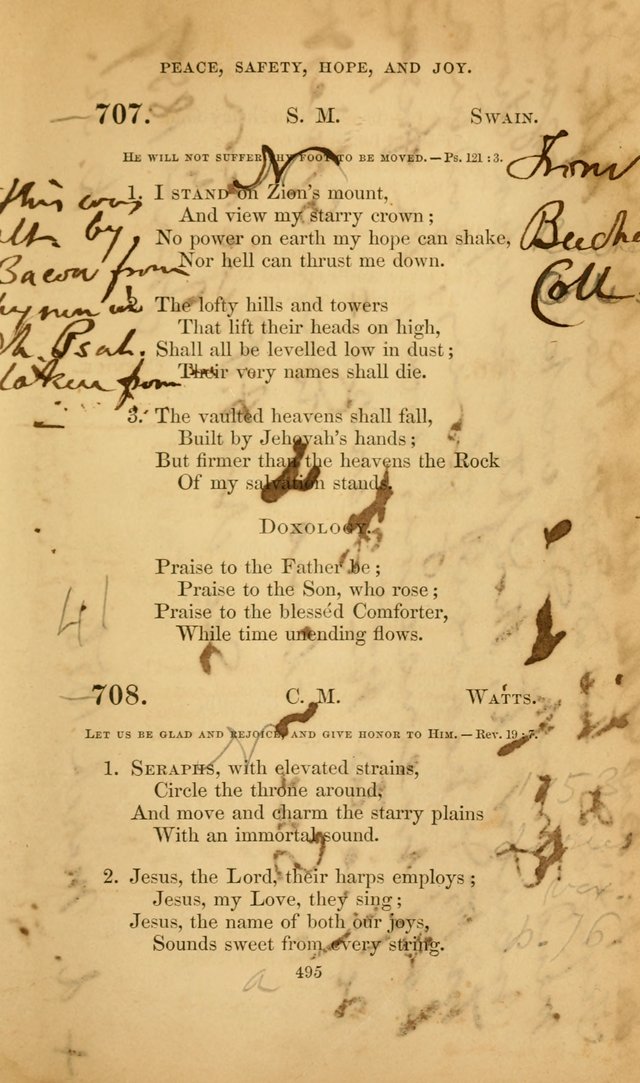 PEACE, SAFETY, HOPE, AND JOY.
707. S. M. SWAIN.
HE WILL NOT SUFFER THY FOOT TO BE MOVED. — Ps. 121 : 3.
N
From
1. I STAND on Zion's mount,
And view my starry crown;
No power on earth my hope can shake,
Nor hell can thrust me down.
This was
by
Bacon from
Psah.
taken from
Coll.
2 The lofty hills and towers
That lift their heads on high,
Shall all be levelled low in dust;
Their very names shall die.
3. The vaulted heavens shall fall,
Built by Jehovah's hands;
But firmer than the heavens the Rock
Of my salvation stands.
DOXOLOGY.
Praise to the Father be;
Praise to the Son, who rose;
Praise to the blesséd Comforter,
While time unending flows.
41
708. C. M. WATTS.
LET US BE GLAD AND REJOICE, AND GIVE HONOR TO HIM. — Rev. 19 : 7.
N
1. SERAPHS, with elevated strains,
Circle the throne around,
And move and charm the starry plains
With an immortal sound.
2. Jesus, the Lord, their harps employs;
Jesus, my Love, they sing;
Jesus, the name of both our joys,
Sounds sweet from every string.
p. 76
495
a